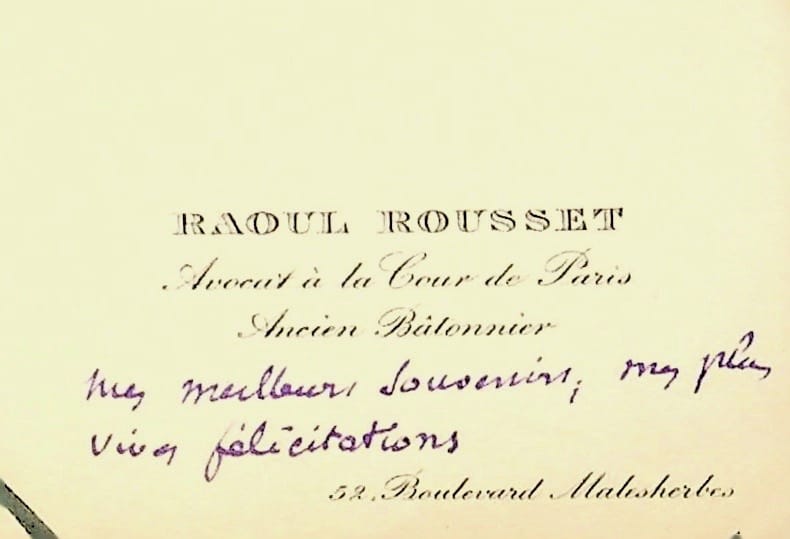 RAOUL ROUSSET
Avocat à la Cour de Paris
Ancien Bâtonnier
mes meilleurs souvenirs, mes plus
vives félicitations
52, Boulevard Malesherbes